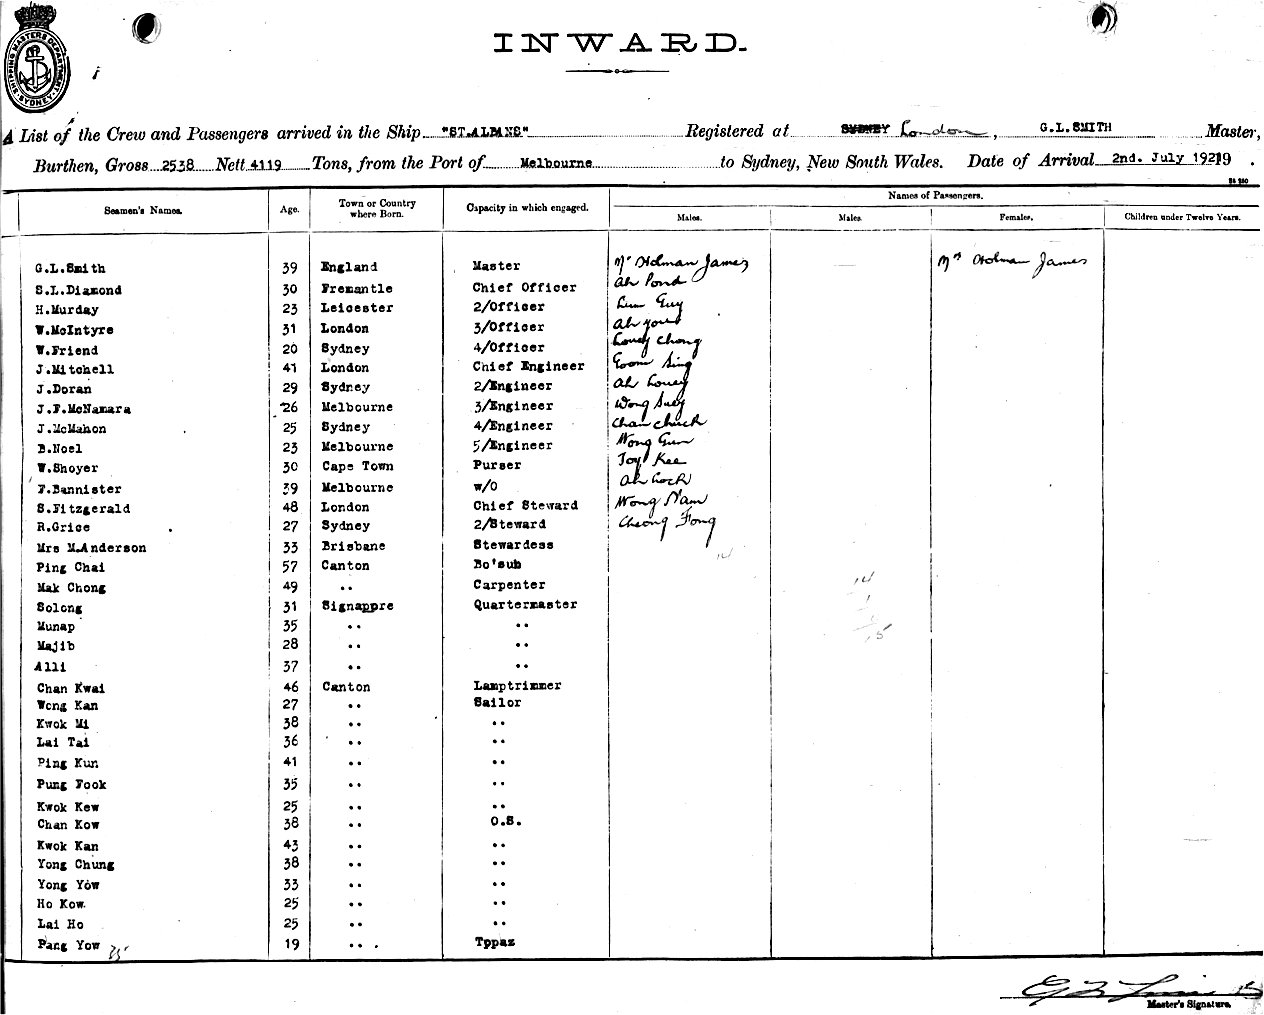 SHIPPING MASTERS DEPARTMENT
SYDNEY
INWARD.
A List of the Crew and Passengers arrived in the Ship "ST.ALBANS" Registered at SYDNEY London, G.L.SMITH Master,
Burthen, Gross 2538 Nett 4119 Tons, from the Port of Melbourne to Sydney, New South Wales. Date of Arrival 2nd. July 1929.
Seamen's Names. Age. Town or Country where Born. Capacity in which engaged. Names of Passengers.
Males. Males. Females. Children under Twelve Years.
G.L.Smith 39 England Master Mr Holman James Mrs Holman James
S.L.Diamond 30 Fremantle Chief Officer Ah Pond
H.Murday 23 Leicester 2/Officer Lum Guy
W.McIntyre 31 London 3/Officer Ah
W.Friend 20 Sydney 4/Officer Louey Chong
J.Mitchell 41 London Chief Engineer Goom Sing
J.Doran 29 Sydney 2/Engineer Ah Louey
J.F.McNamara 26 Melbourne 3/Engineer Wong Suey
J.McMahon 25 Sydney 4/Engineer Chan Chuck
B.Noel 23 Melbourne 5/Engineer Wong Gun
W.Shoyer 30 Cape Town Purser Toy Kee
F.Bannister 39 Melbourne w/O Ah Cock
S.Fitzgerald 48 London Chief Steward Wong Nam
R.Grice 27 Sydney 2/Steward Cheong Fong
Mrs M.Anderson 33 Brisbane Stewardess
14
Ping Chai 57 Canton Bo'sub
Mak Chong 49 .. Carpenter 14
Solong 31 Signappre Quartermaster 1
Munap 35 .. .. 15
Majib 28 .. ..
Alli 37 .. ..
Chan Kwai 46 Canton Lamptrimmer
Wong Kan 27 .. Sailor
Kwok Mi 38 .. ..
Lai Tai 36 .. ..
Ping Kun 41 .. ..
Pung Fook 35 .. ..
Kwok Kew 25 .. ..
Chan Kow 38 .. O.S.
Kwok Kan 43 .. ..
Yong Chung 38 .. ..
Yong Yow 33 .. ..
Ho Kow 25 .. ..
Lai Ho 25 .. ..
Pang Yow 19 .. Tppaz
35
Master's Signature.